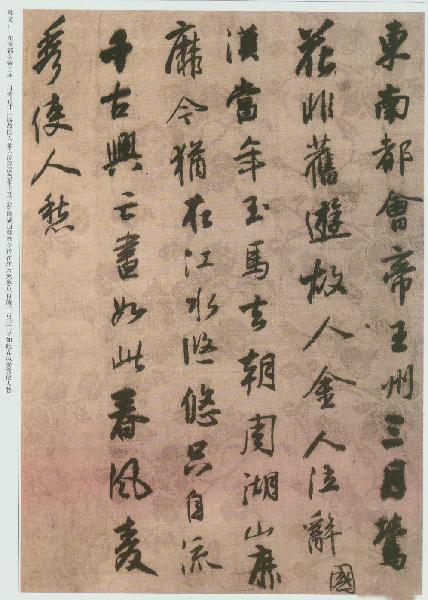 東南都會帝王州三月鶯
花非舊遊故人金人泣辭國
漢當年玉馬去朝周湖山靡
靡今猶在江水悠悠只自流
千古興亡盡如此春風麥
秀使人愁